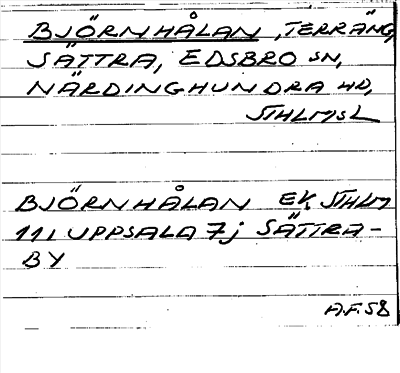 BJÖRNHÅLAN, TERRÄNG,
SÄTTRA, EDSBRO SN,
NÄRDINGHUNDRA HD,
STHLMSL
BJÖRNHÅLAN EK STHLM
111 UPPSALA 7j SÄTTRA-
BY
A.F. 58